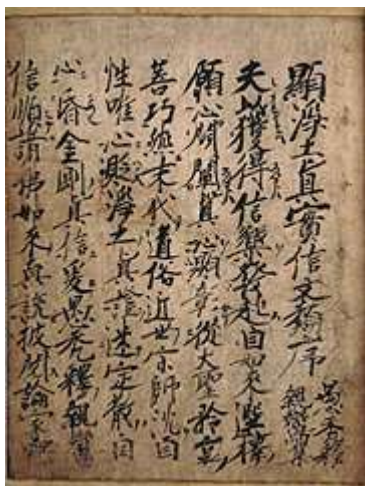 顯淨土真實信文類序
愚禿釋
親鸞集
夫以獲得信樂發起自如來選擇
願心開闡真心顯彰從大聖矜哀
善巧然末代道俗近世宗師沈自
性唯心貶淨土真證迷定散自
心昏金剛真信爰愚禿釋親鸞
信順諸佛如來真說披閱論家